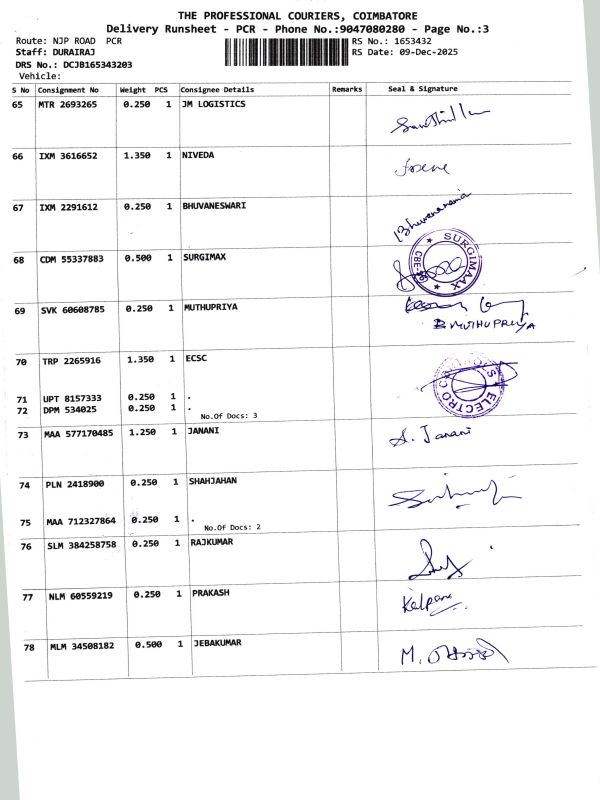 THE PROFESSIONAL COURIERS, COIMBATORE
Delivery Runsheet - PCR - Phone No.:9047080280 - Page No.:3
Route: NJP ROAD PCR RS No.: 1653432
Staff: DURAIRAJ RS Date: 09-Dec-2025
DRS No.: DCJB165343203
Vehicle:
S No Consignment No Weight PCS Consignee Details Remarks Seal & Signature
65 MTR 2693265 0.250 1 JM LOGISTICS
66 IXM 3616652 1.350 1 NIVEDA
67 IXM 2291612 0.250 1 BHUVANESWARI
Bhuvaneswari
68 CDM 55337883 0.500 1 SURGIMAX
SURGIMAAX
CBE
69 SVK 60608785 0.250 1 MUTHUPRIYA
B MUTHUPRIYA
70 TRP 2265916 1.350 1 ECSC
ELECTRO
71 UPT 8157333 0.250 1 .
72 DPM 534025 0.250 1 .
No.Of Docs: 3
73 MAA 577170485 1.250 1 JANANI
A. Janani
74 PLN 2418900 0.250 1 SHAHJAHAN
75 MAA 712327864 0.250 1 .
No.Of Docs: 2
76 SLM 384258758 0.250 1 RAJKUMAR
77 NLM 60559219 0.250 1 PRAKASH
Kalpana
78 MLM 34508182 0.500 1 JEBAKUMAR
M.